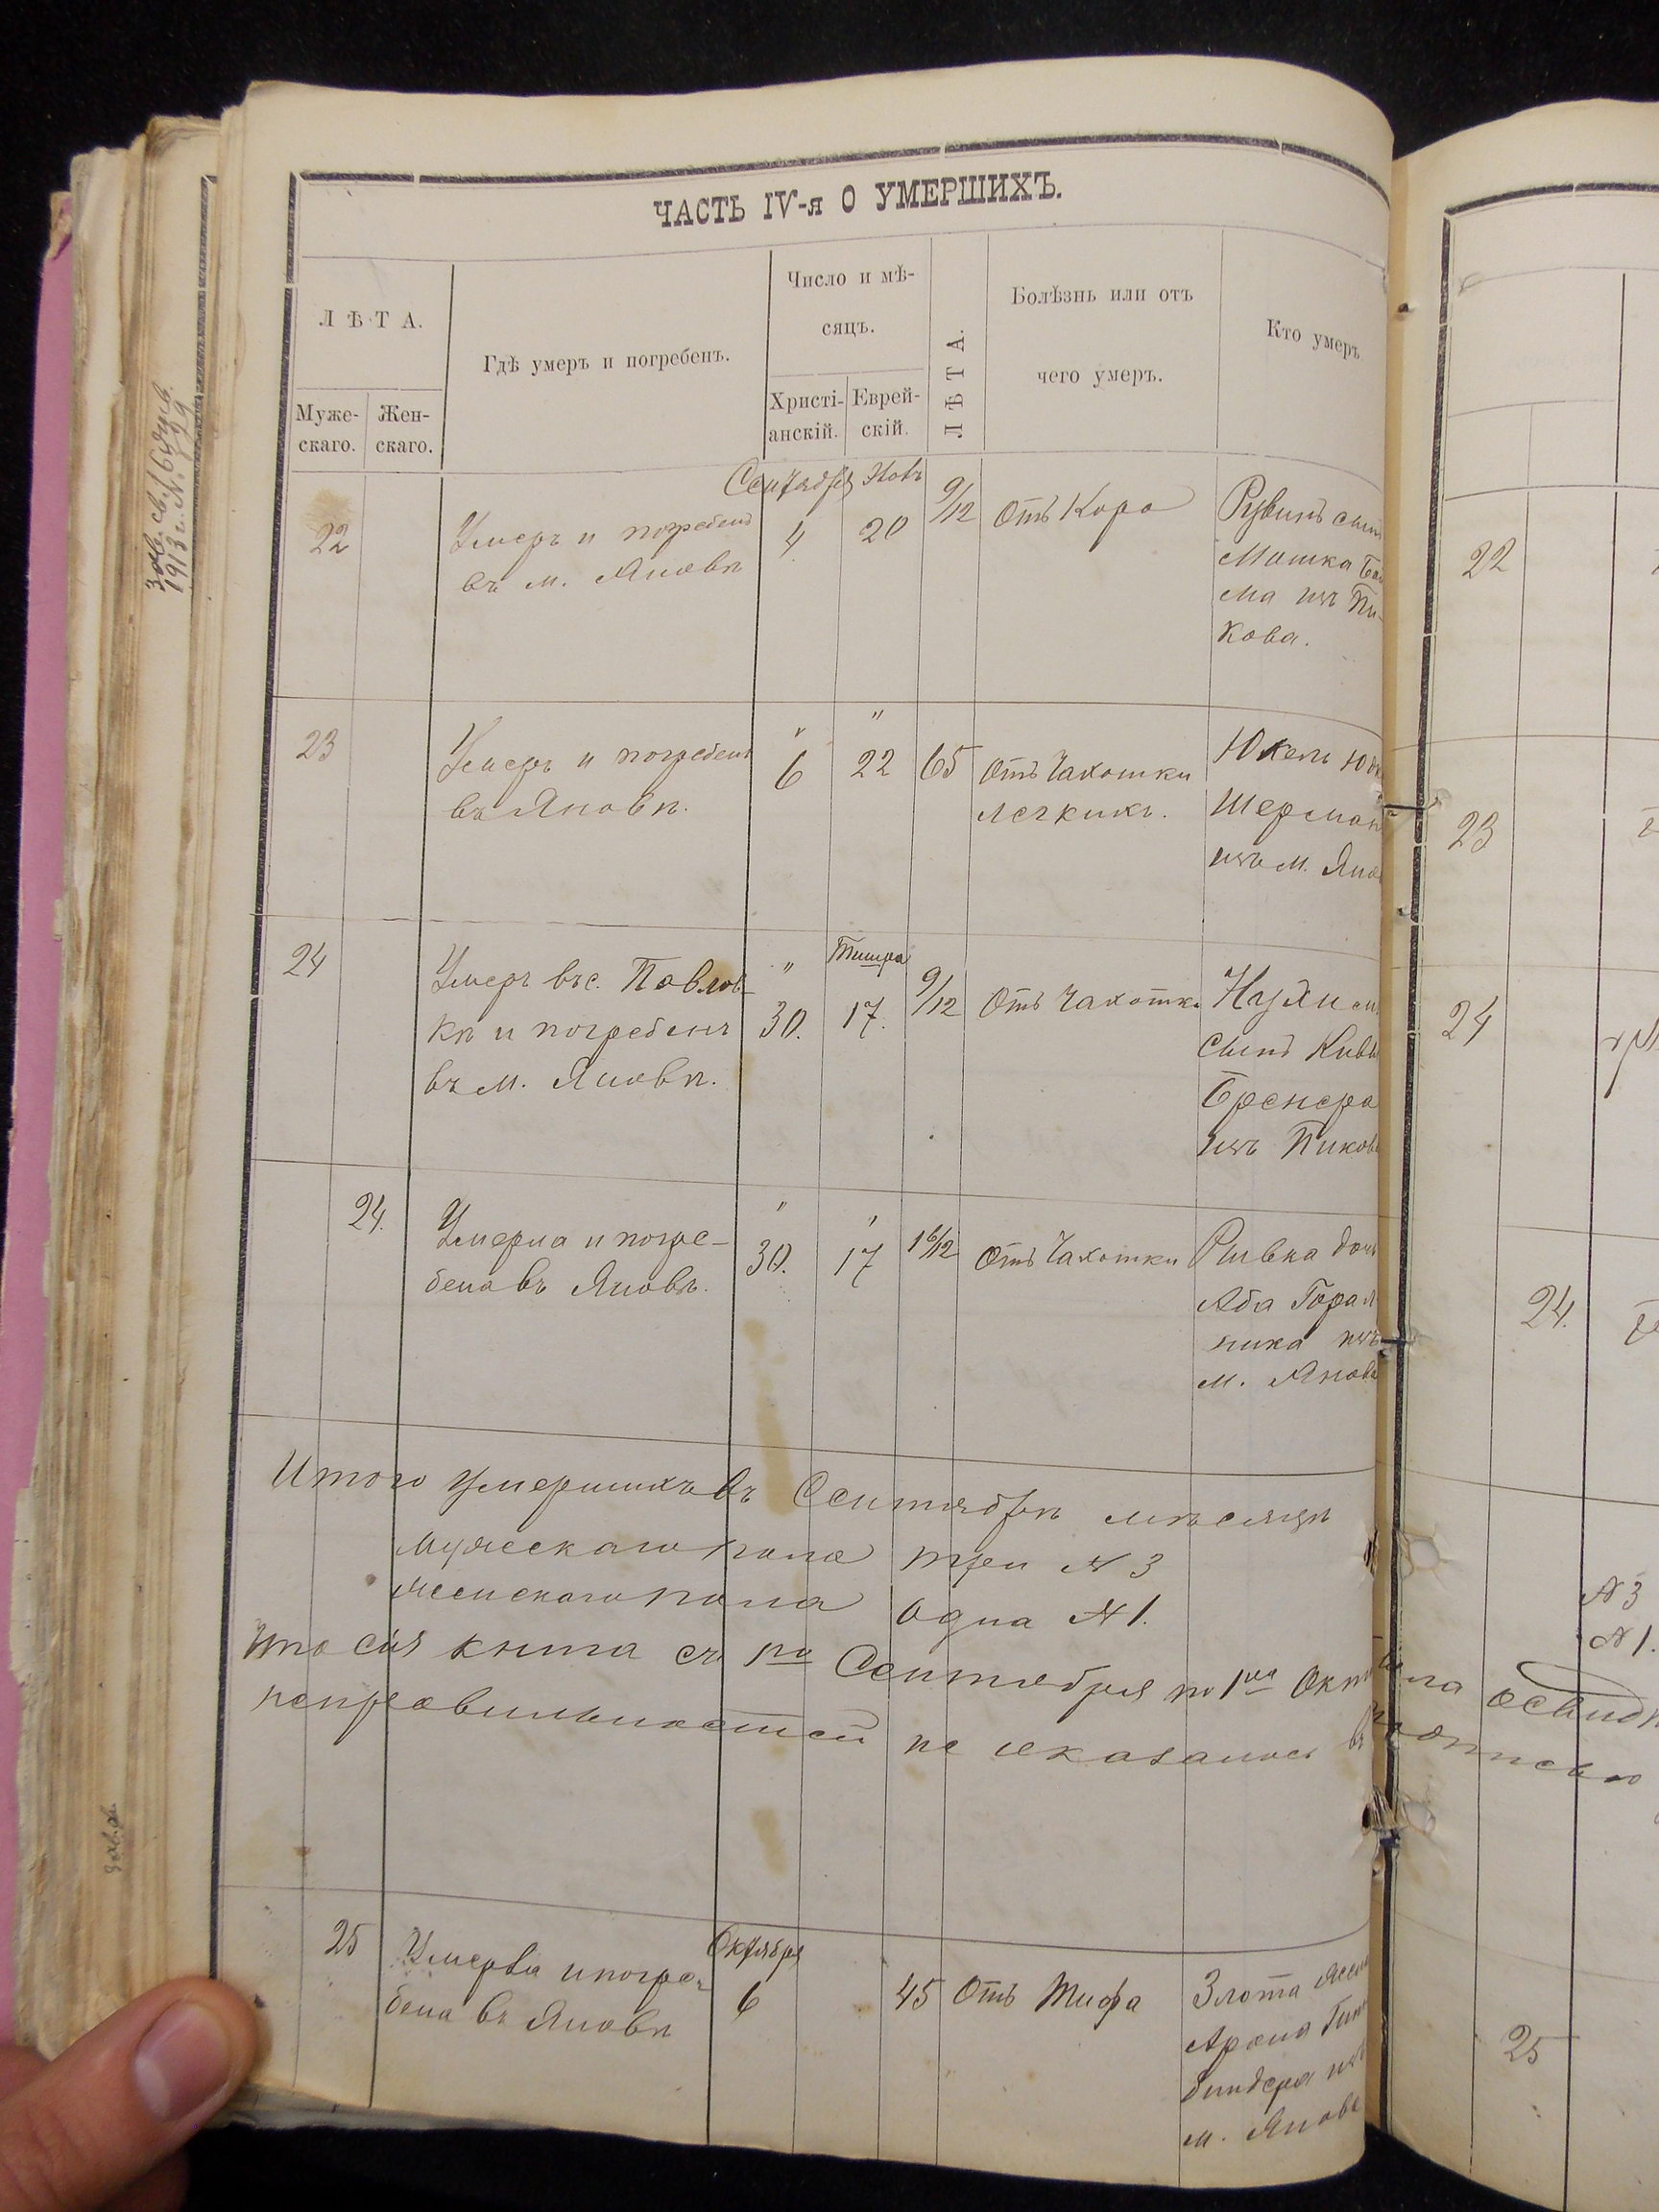 ЧАСТЬ IV-я О УМЕРШИХЪ.
ЛѢТА.
Муже-
скаго.
Жен-
скаго.
Гдѣ умеръ и погребенъ.
Число и мѣ-
сяцъ.
Христі-
анскій.
Еврей-
скій.
ЛѢТА.
Болѣзнь или отъ
чего умеръ.
Кто умеръ
22
Умеръ и погребенъ
въ м. Яновѣ
Сентября
4
20
9/12
Отъ Коро
Рувинъ сынъ
Мошка
ма изъ Пи-
кова.
22
23
Умеръ и погребенъ
въ Яновѣ.
"
6
"
22
65
Отъ Чахотки
легкихъ.
Юкель
Шерман
изъ м. Янов
23
24
Умеръ въ с. Павлов-
кѣ и погребенъ
въ м. Яновѣ.
"
30.
Тишра
17.
9/12
Отъ Чахотки
сынъ Кив
Бренера
изъ Пиков
24
24.
Умерла и погре-
бена въ Яновѣ.
"
30.
"
17
16/12
Отъ Чахотки
Ривка доч
Аба Горал
ника изъ
м. Янов
24.
Итого Умершихъ въ Сентябрѣ мѣсяцѣ
мужескаго пола три № 3
женскаго пола одна № 1.
№ 3
№ 1.
Что сія книга съ 1го Сентября по 1ое Окт
неправильностей не оказалось
25
Умерла и погре-
бена въ Яновѣ
Октября
6
45
Отъ Тифа
Злота жен
Арона
биндера изъ
м. Янов
25
Зав. св.
1913 г. №